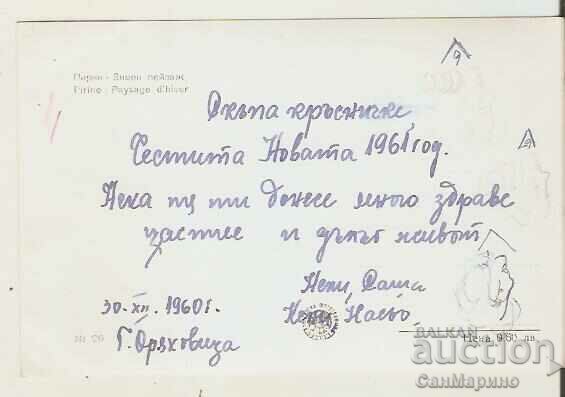 Пирин - Зимен пейзаж
Pirine : Paysage d'hiver
Скъпа кръсничке
Честита Новата 1961 год.
Нека ти донесе много здраве
щастие и дълъг живот
Нени, Саша
Насьо
30.XII. 1960 г.
Г. Оряховица
Цена 0,60 лв.
BALKAN
auction
СанМарино